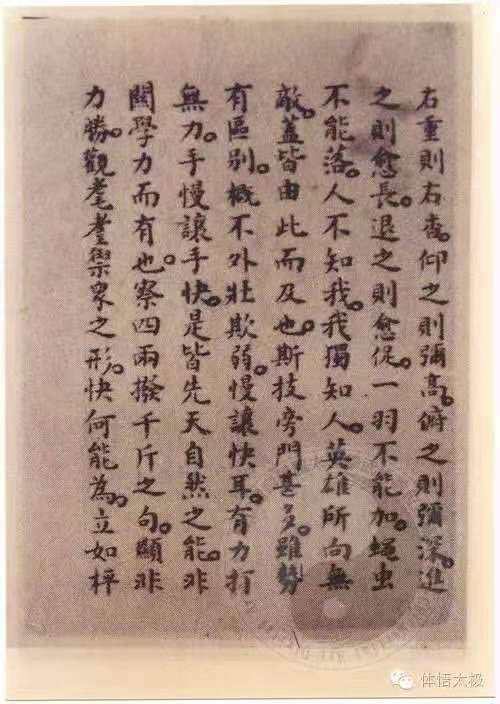 右重則右杳。仰之則彌高。俯之則彌深。進
之則愈長。退之則愈促。一羽不能加。蝇虫
不能落。人不知我。我獨知人。英雄所向無
敵。蓋皆由此而及也。斯技旁門甚多。雖勢
有區别。概不外壯欺弱。慢讓快耳。有力打
無力。手慢讓手快。是皆先天自然之能。非
關學力而有也。察四兩撥千斤之句。顯非
力勝。觀耄耋禦眾之形。快何能為。立如枰
体悟太极